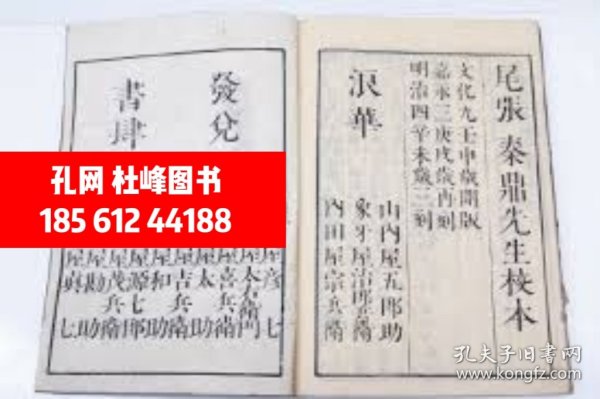 尾張 秦鼎先生校本
文化九壬申歳開版
嘉永三庚戌歳再刻
明治四辛未歳三刻
浪華
山内屋五郎助
象牙屋治郎兵衞
内田屋宗兵衞
發兌
書肆
屋彦七
屋今右衞門
屋喜兵衞
屋太助
屋吉兵衞
屋和助
屋源七郎
屋茂兵衞
屋勘助
屋眞七
孔网 杜峰图书
185 612 44188
孔夫子旧書网
www.kongfz.com